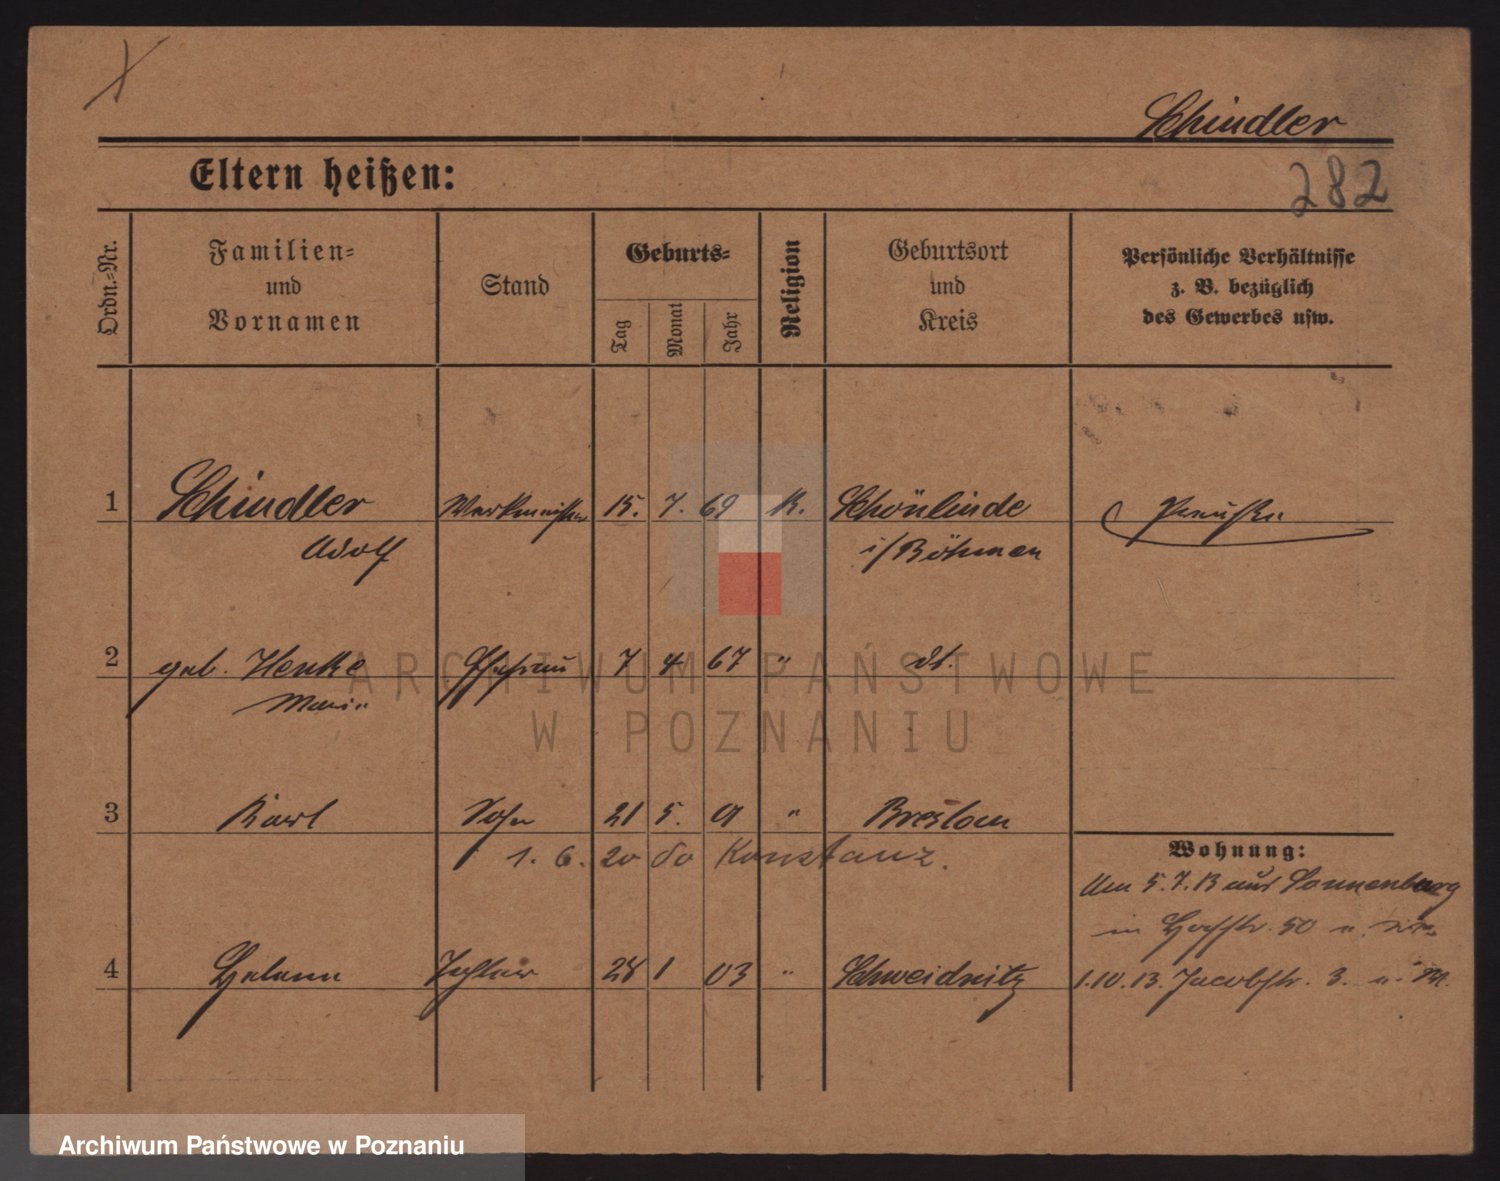 Schindler
282
Eltern heißen:
Ordn.-Nr.
Familien-
und
Vornamen
Stand
Geburts-
Tag
Monat
Jahr
Religion
Geburtsort
und
Kreis
Persönliche Verhältnisse
z. B. bezüglich
des Gewerbes usw.
1 Schindler Werkmeister 15. 7. 69 K. Schönlinde Preuße
Adolf i/Böhmen
2 geb. Henke Ehefrau 7 4 67 " dt.
Marie
3 Karl Sohn 21 5. 01 " Breslau
1. 6. 20 do Konstanz.
Wohnung:
Am 5.7.13 aus Sonnenburg
in 50 u.
4 Helene Tochter 28 1 03 " Schweidnitz 1.10.13. Jacobstr. 3. u.
ARCHIWUM PAŃSTWOWE
W POZNANIU
Archiwum Państwowe w Poznaniu